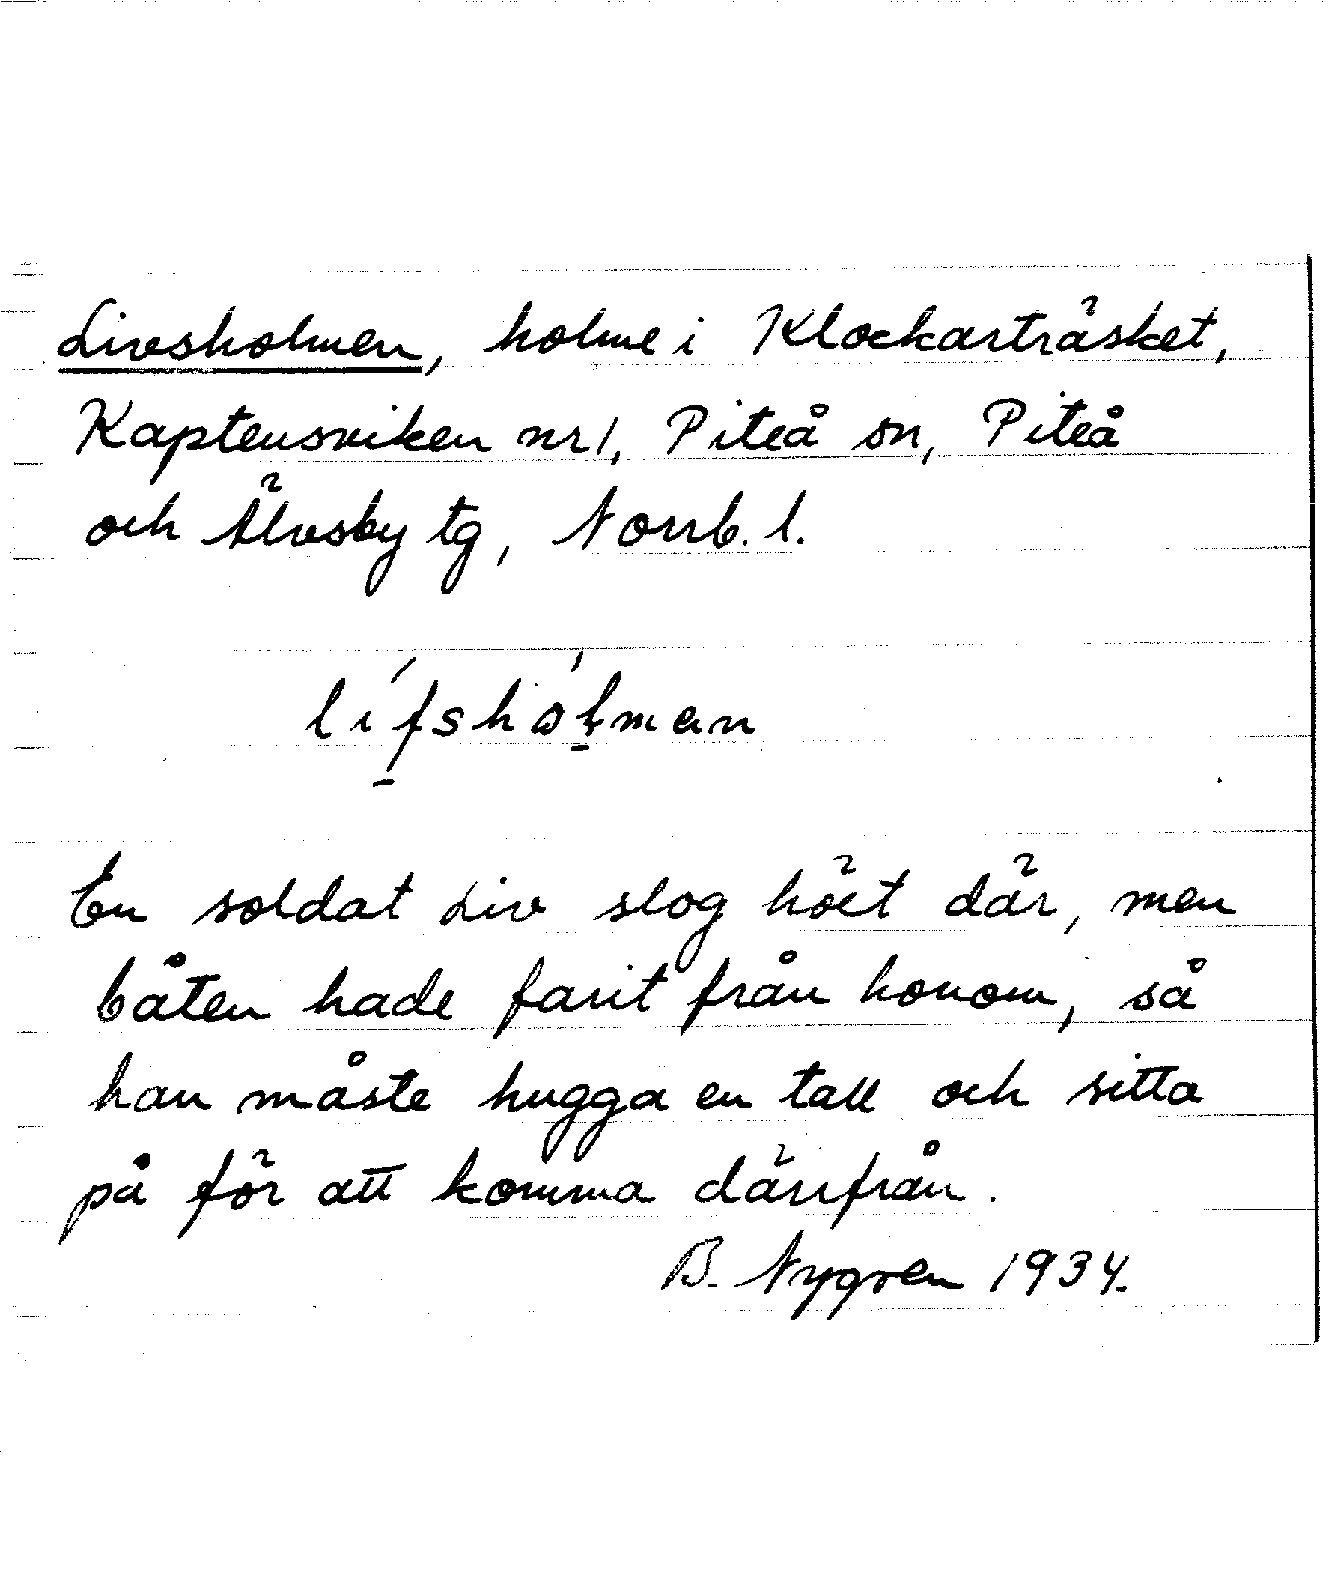 Livsholmen, holme i Klockarträsket,
Kaptensviken nr 1, Piteå sn, Piteå
och Älvsby tg, Norrb. l.
lífshólmen
En soldat Liv slog höet där, men
båten hade farit från honom, så
han måste hugga en tall och sitta
på för att komma därifrån.
B. Nygren 1934.